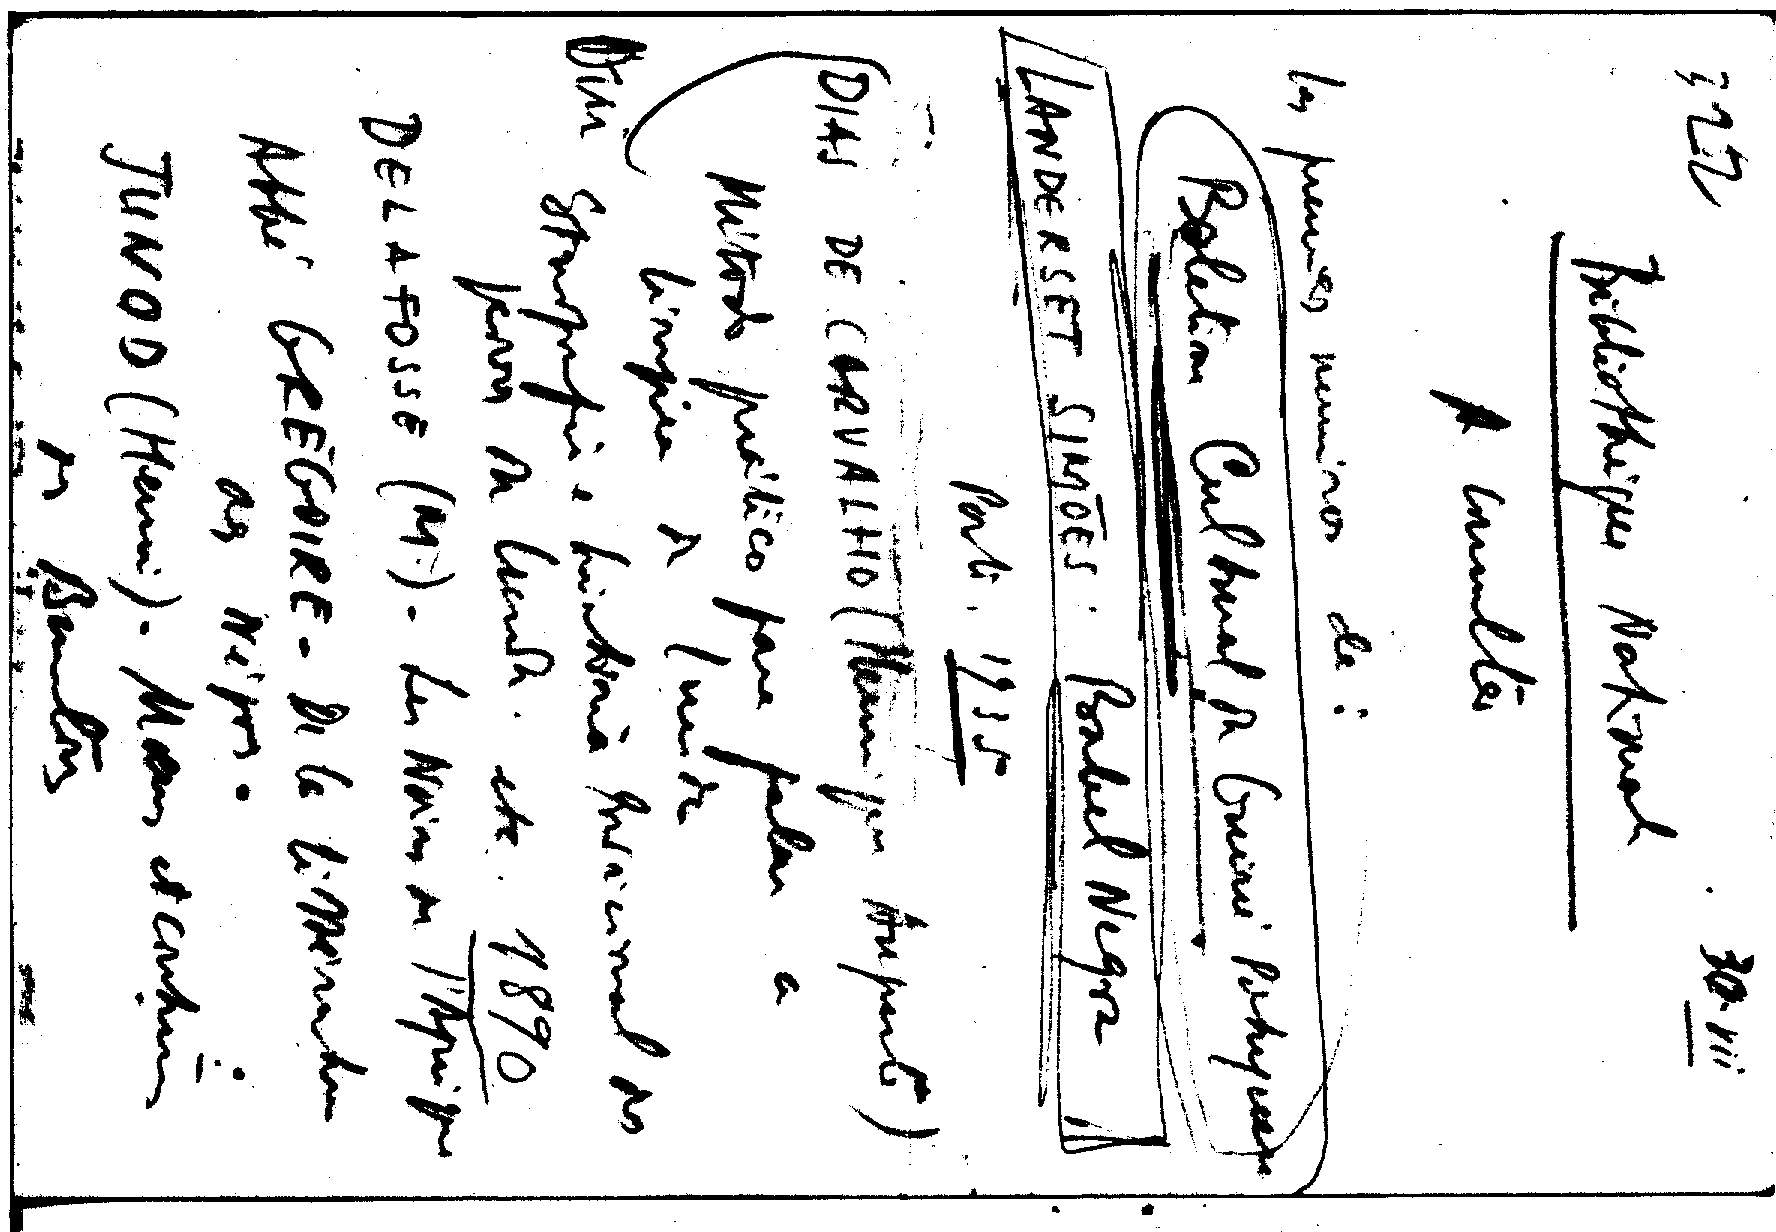 30 VII
Bibliothèque National
A Consulter
les premières numéros de :
Boletim Cultural da Guiné Portuguesa
LANDERSET SIMÕES : Babel Negra
Porto. 1935
DIAS DE CARVALHO (Henrique Augusto)
Método prático para falar a
língua da Lunda
Etnografia e história tradicional dos
povos da Lunda. etc. 1890
DELAFOSSE (M.). Les Noirs de l'Afrique
Abbé GRÉGOIRE. De la littérature
des Nègres.
JUNOD (Henri). Mœurs et coutumes
des Bantous